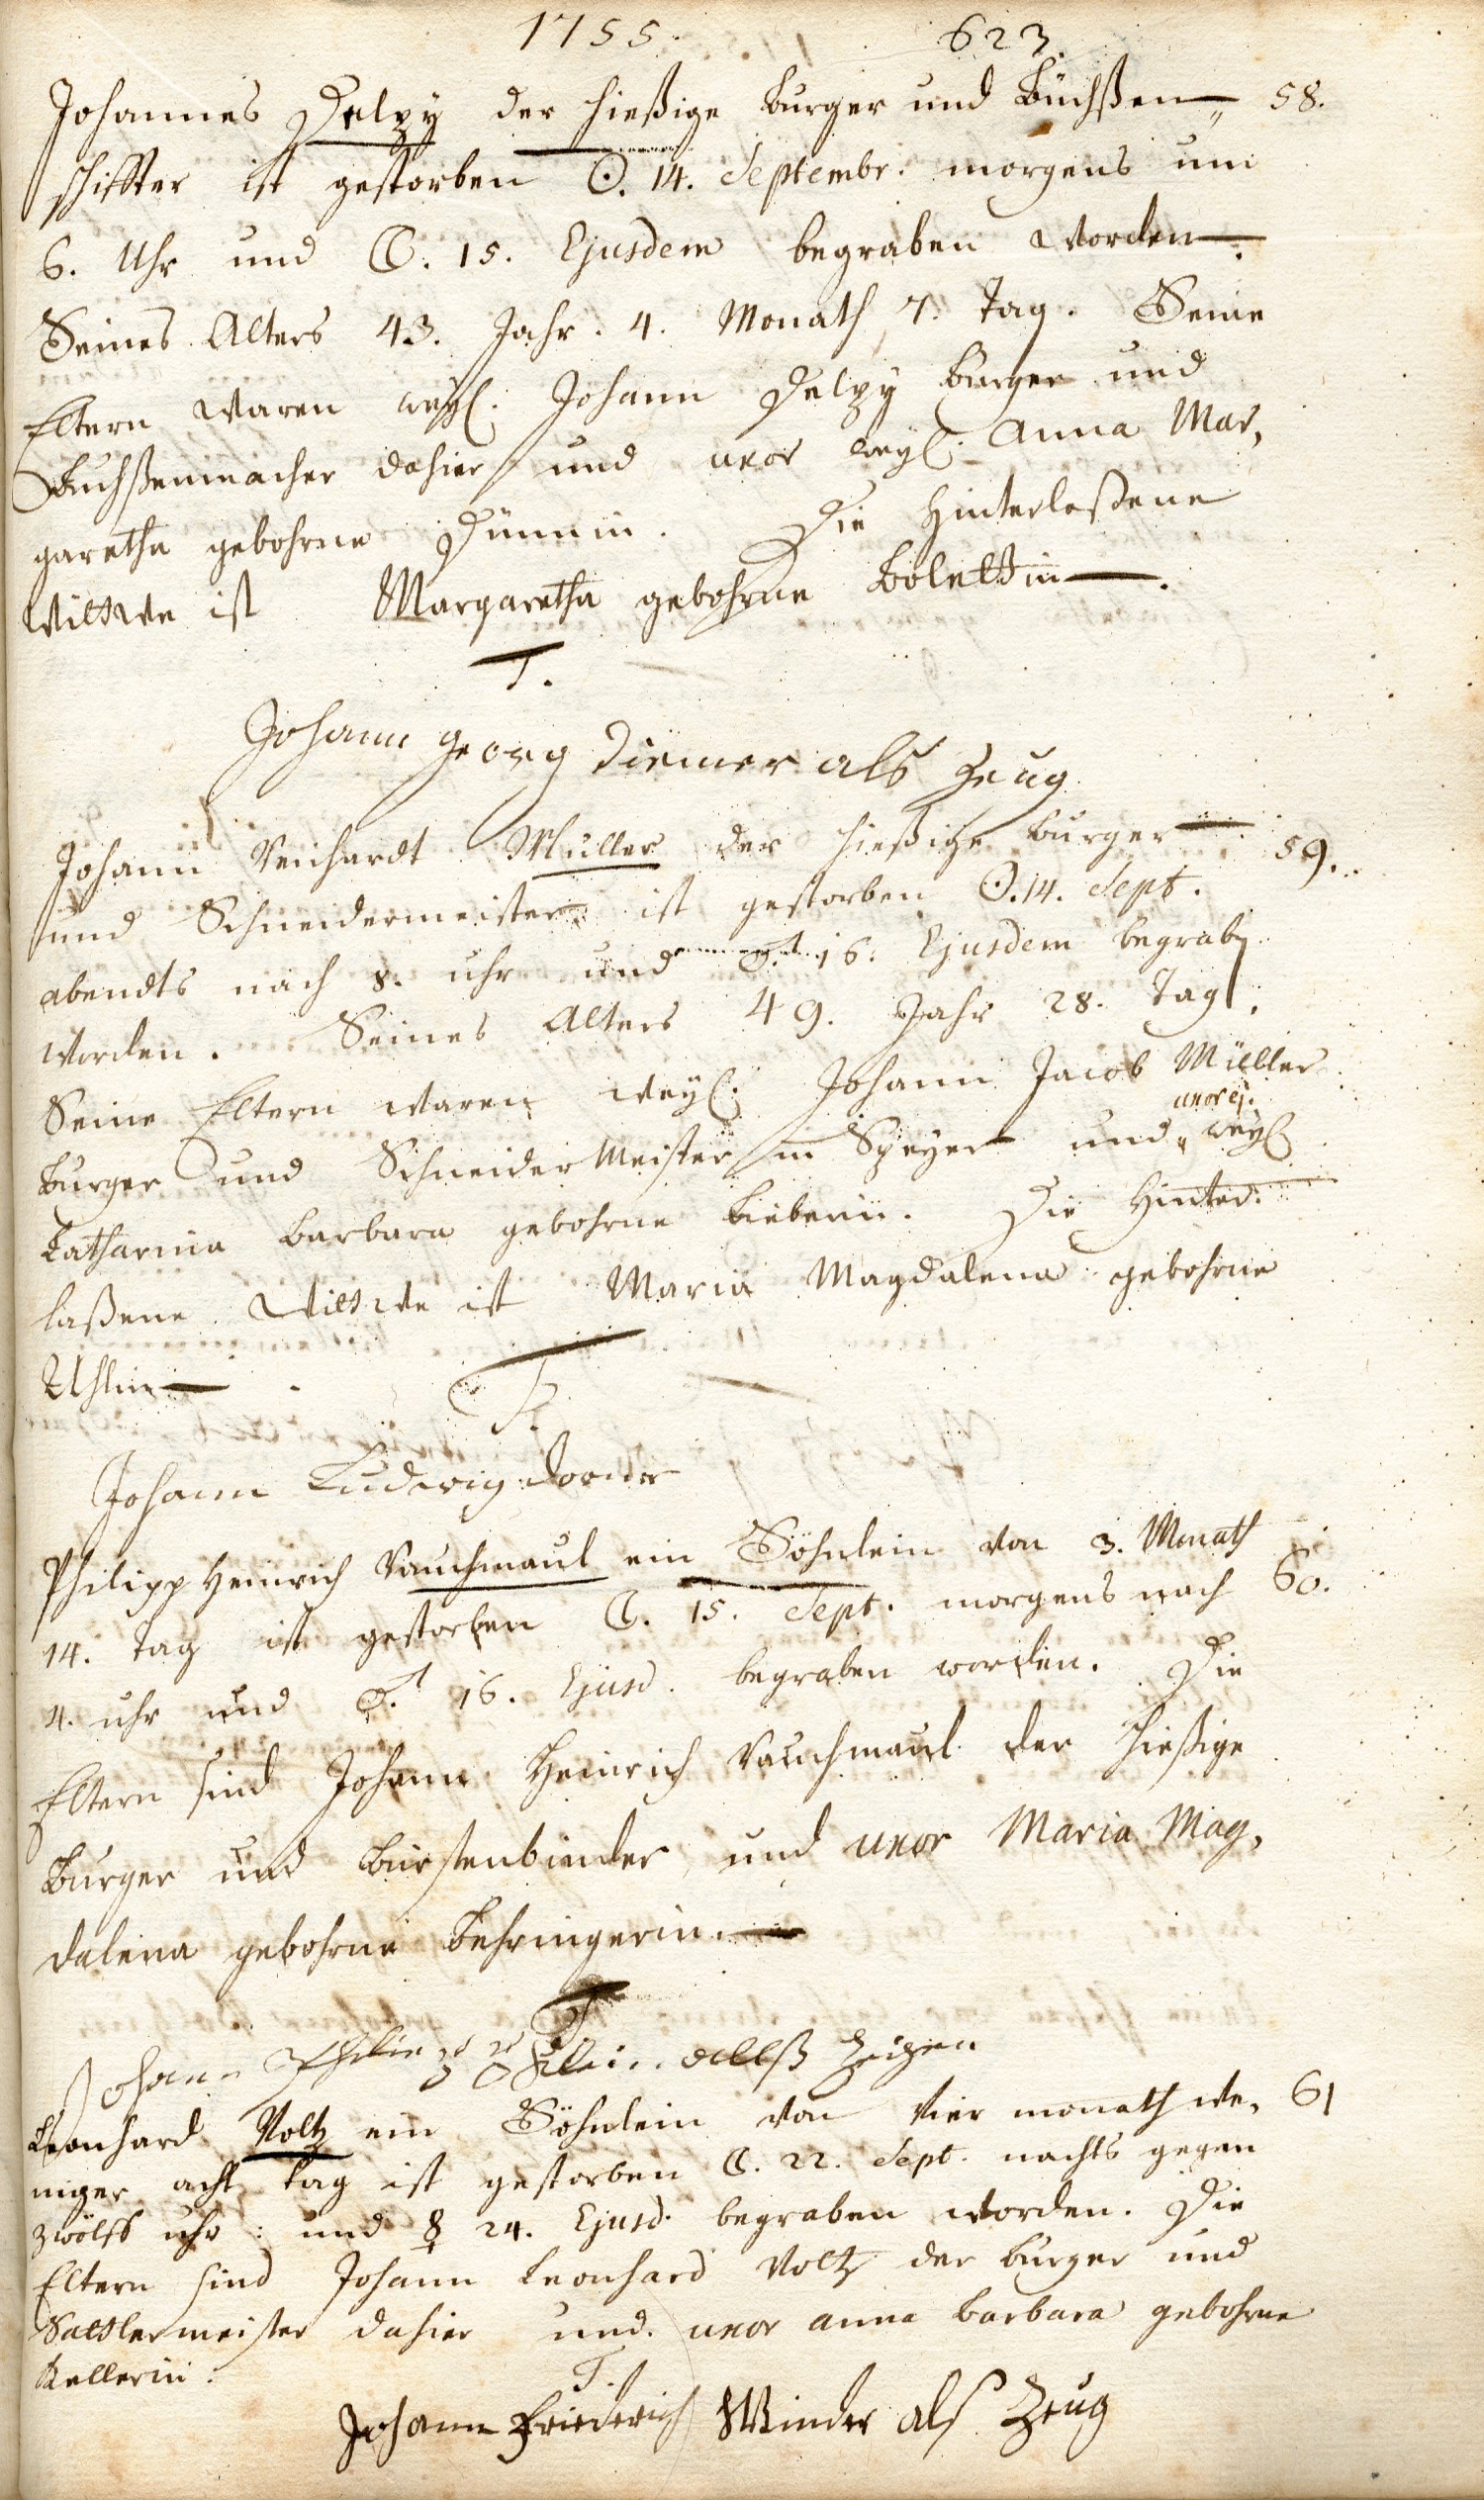 1755. 623
Johannes Delpy der hießige Burger und Büchßen- 58.
schiffter ist gestorben ☉. 14. Septembr. morgens um
6. Uhr und ☾. 15. Ejusdem begraben worden.
Seines Alters 43. Jahr. 4. Monath 7. Tag. Seine
Eltern waren weyl. Johann Delpy Burger und
Buchßenmacher dahier und uxor weyl. Anna Mar,
garetha gebohrne Dümmin. Die Hinterlaßene
Wittwe ist Margaretha gebohrne Bolettin.
T.
Johann Georg Diemer als Zeug
Johann Reichardt Müller der hießige Burger 59.
und Schneidermeister ist gestorben ☉. 14. Sept.
abendts nach 8. uhr und ♂. 16. Ejusdem begraben
worden. Seines Alters 49. Jahr 28. Tag.
Seine Eltern waren weyl. Johann Jacob Müller
uxor ej.
Burger und Schneider Meister in Speyer und weyl
Catharina Barbara gebohrne Bieberin. Die Hinter-
laßene Wittwe ist Maria Magdalena gebohrne
Uhlin.
T.
Johann Ludwig Dorner
Philipp Heinrich Rauchmaul ein Söhnlein von 3. Monath
14. Tag ist gestorben ☾. 15. Sept. morgens nach 60.
4. uhr und ♂. 16. Ejusd. begraben worden. Die
Eltern sind Johann Heinrich Rauchmaul der hießige
Burger und Bürstenbinder und uxor Maria Mag,
dalena gebohrne Behringerin.
T
Johann Philipp allß Zeigen
Leonhard Voltz ein Söhnlein von vier monath we, 61
niger acht tag ist gestorben ☾. 22. Sept. nachts gegen
zwölff uhr: und ☿ 24. Ejusd. begraben worden. Die
Eltern sind Johann Leonhard Voltz der burger und
Sattlermeister dahier und uxor anna Barbara gebohrne
Kellerin.
T.
Johann Friederich Winder als Zeug